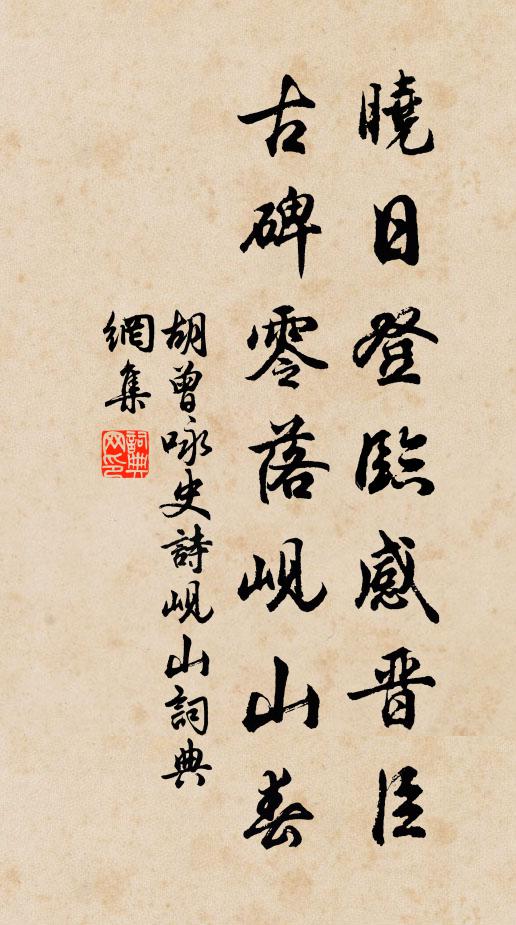 曉日登臨感晋臣
古碑零落峴山春
胡曾咏史詩峴山詞典
網集
詞典
网印